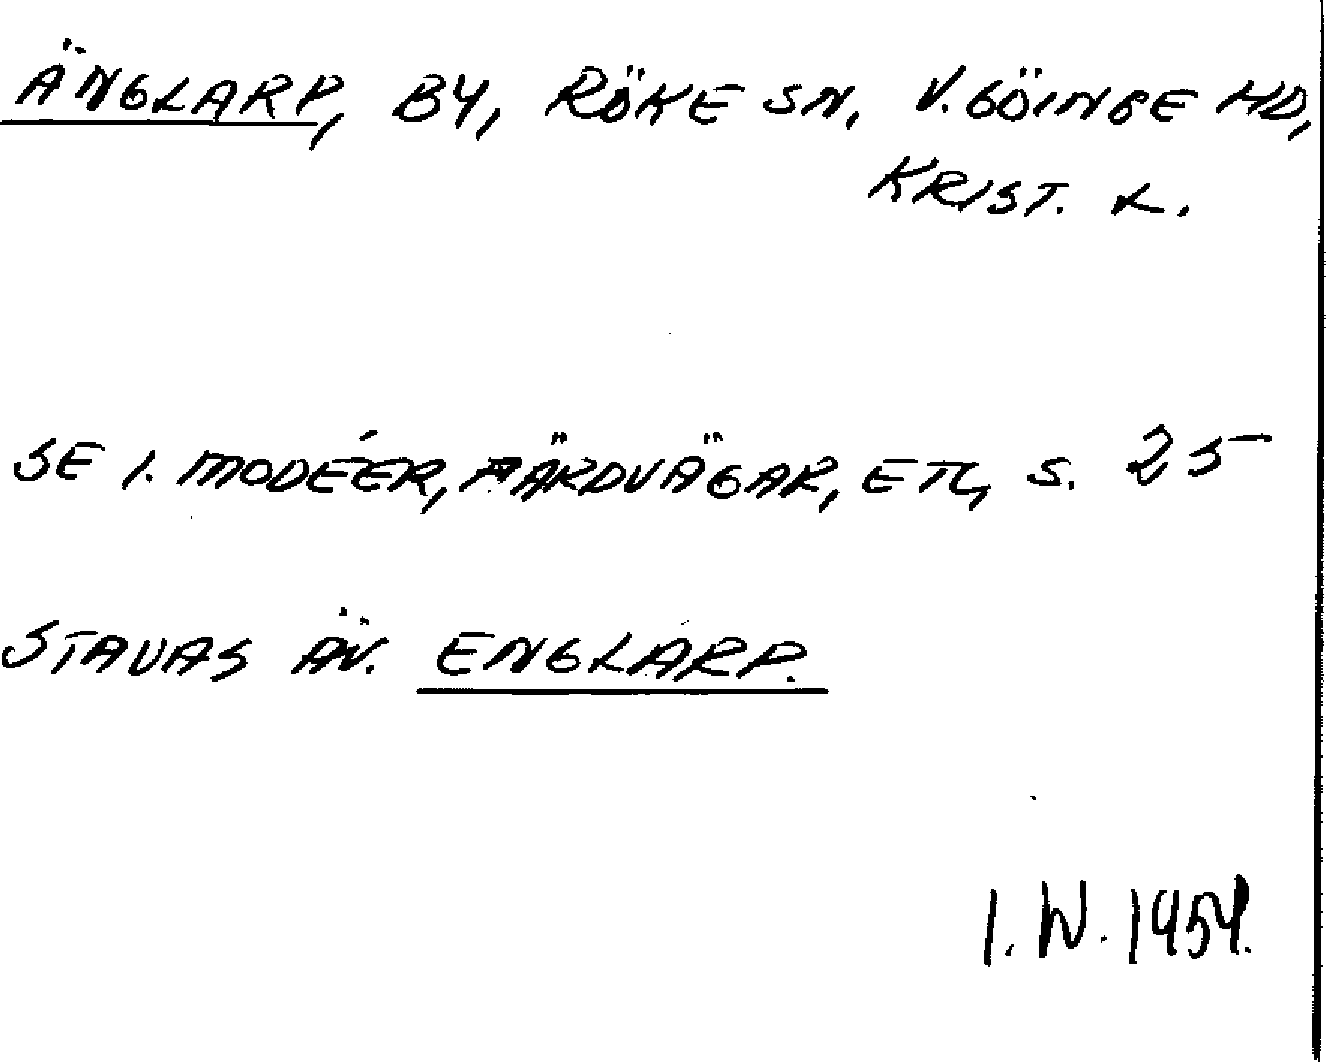 ÄNGLARP, BY, RÖKE SN, V. GÖINGE HD,
KRIST. L.
SE I. MODÉER, FÄRDVÄGAR, ETC, S. 25
STAVAS ÄV. ENGLARP.
I. W. 1954.